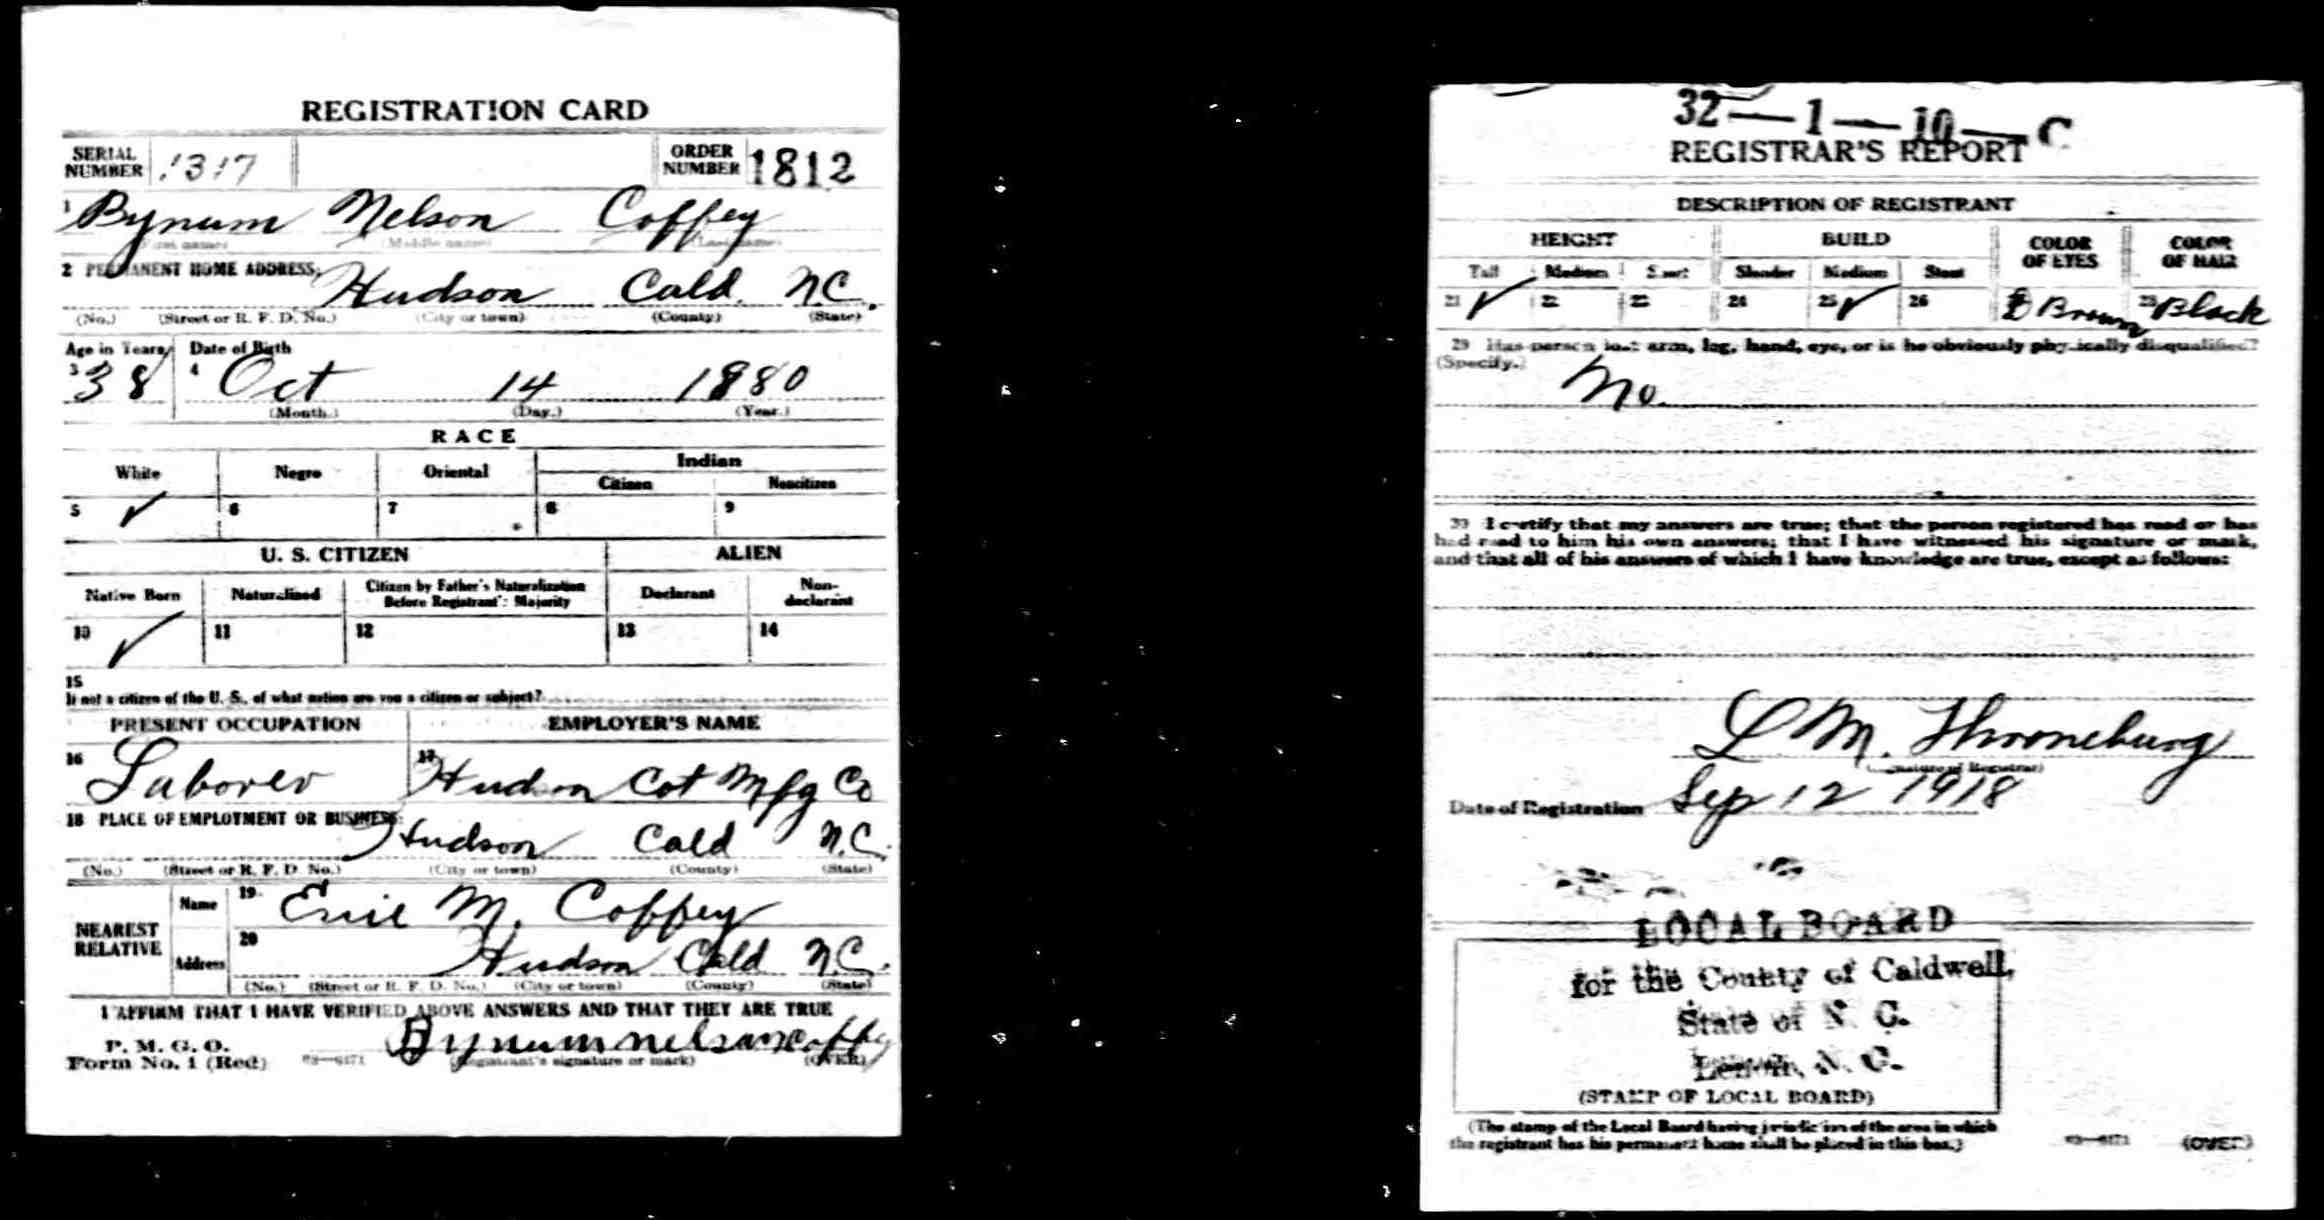 REGISTRATION CARD
SERIAL NUMBER 1317 ORDER NUMBER 1812
1 Bynum Nelson Coffey
(First name) (Middle name) (Last name)
2 PERMANENT HOME ADDRESS:
Hudson Cald. N.C.
(No.) (Street or R. F. D. No.) (City or town) (County) (State)
Age in Years Date of Birth
3 38 4 Oct 14 1880
(Month.) (Day.) (Year.)
RACE
White Negro Oriental Indian
Citizen Noncitizen
5 ✓ 6 7 8 9
U. S. CITIZEN ALIEN
Native Born Naturalized Citizen by Father's Naturalization Before Registrant's Majority Declarant Non-declarant
10 ✓ 11 12 13 14
15
If not a citizen of the U. S., of what nation are you a citizen or subject?
PRESENT OCCUPATION EMPLOYER'S NAME
16 Laborer 17 Hudson Cot Mfg Co
18 PLACE OF EMPLOYMENT OR BUSINESS:
Hudson Cald N.C.
(No.) (Street or R. F. D. No.) (City or town) (County) (State)
NEAREST RELATIVE Name 19 M. Coffey
Address 20 Hudson Cald N.C.
(No.) (Street or R. F. D. No.) (City or town) (County) (State)
I AFFIRM THAT I HAVE VERIFIED ABOVE ANSWERS AND THAT THEY ARE TRUE
P. M. G. O.
Form No. 1 (Red) 03—6171 Bynum nelson Coffey
(Registrant's signature or mark) (OVER)
32—1—10—C
REGISTRAR'S REPORT
DESCRIPTION OF REGISTRANT
HEIGHT BUILD COLOR OF EYES COLOR OF HAIR
Tall Medium Short Slender Medium Stout
21 ✓ 22 23 24 25 ✓ 26 Brown 28 Black
29 Has person lost arm, leg, hand, eye, or is he obviously physically disqualified?
(Specify.) No
30 I certify that my answers are true; that the person registered has read or has
had read to him his own answers; that I have witnessed his signature or mark,
and that all of his answers of which I have knowledge are true, except as follows:
L M. Throneburg
(Signature of Registrar)
Date of Registration Sep 12 1918
LOCAL BOARD
for the County of Caldwell,
State of N. C.
Lenoir, N. C.
(STAMP OF LOCAL BOARD)
(The stamp of the Local Board having jurisdiction of the area in which
the registrant has his permanent home shall be placed in this box.)
03—6171 (OVER)